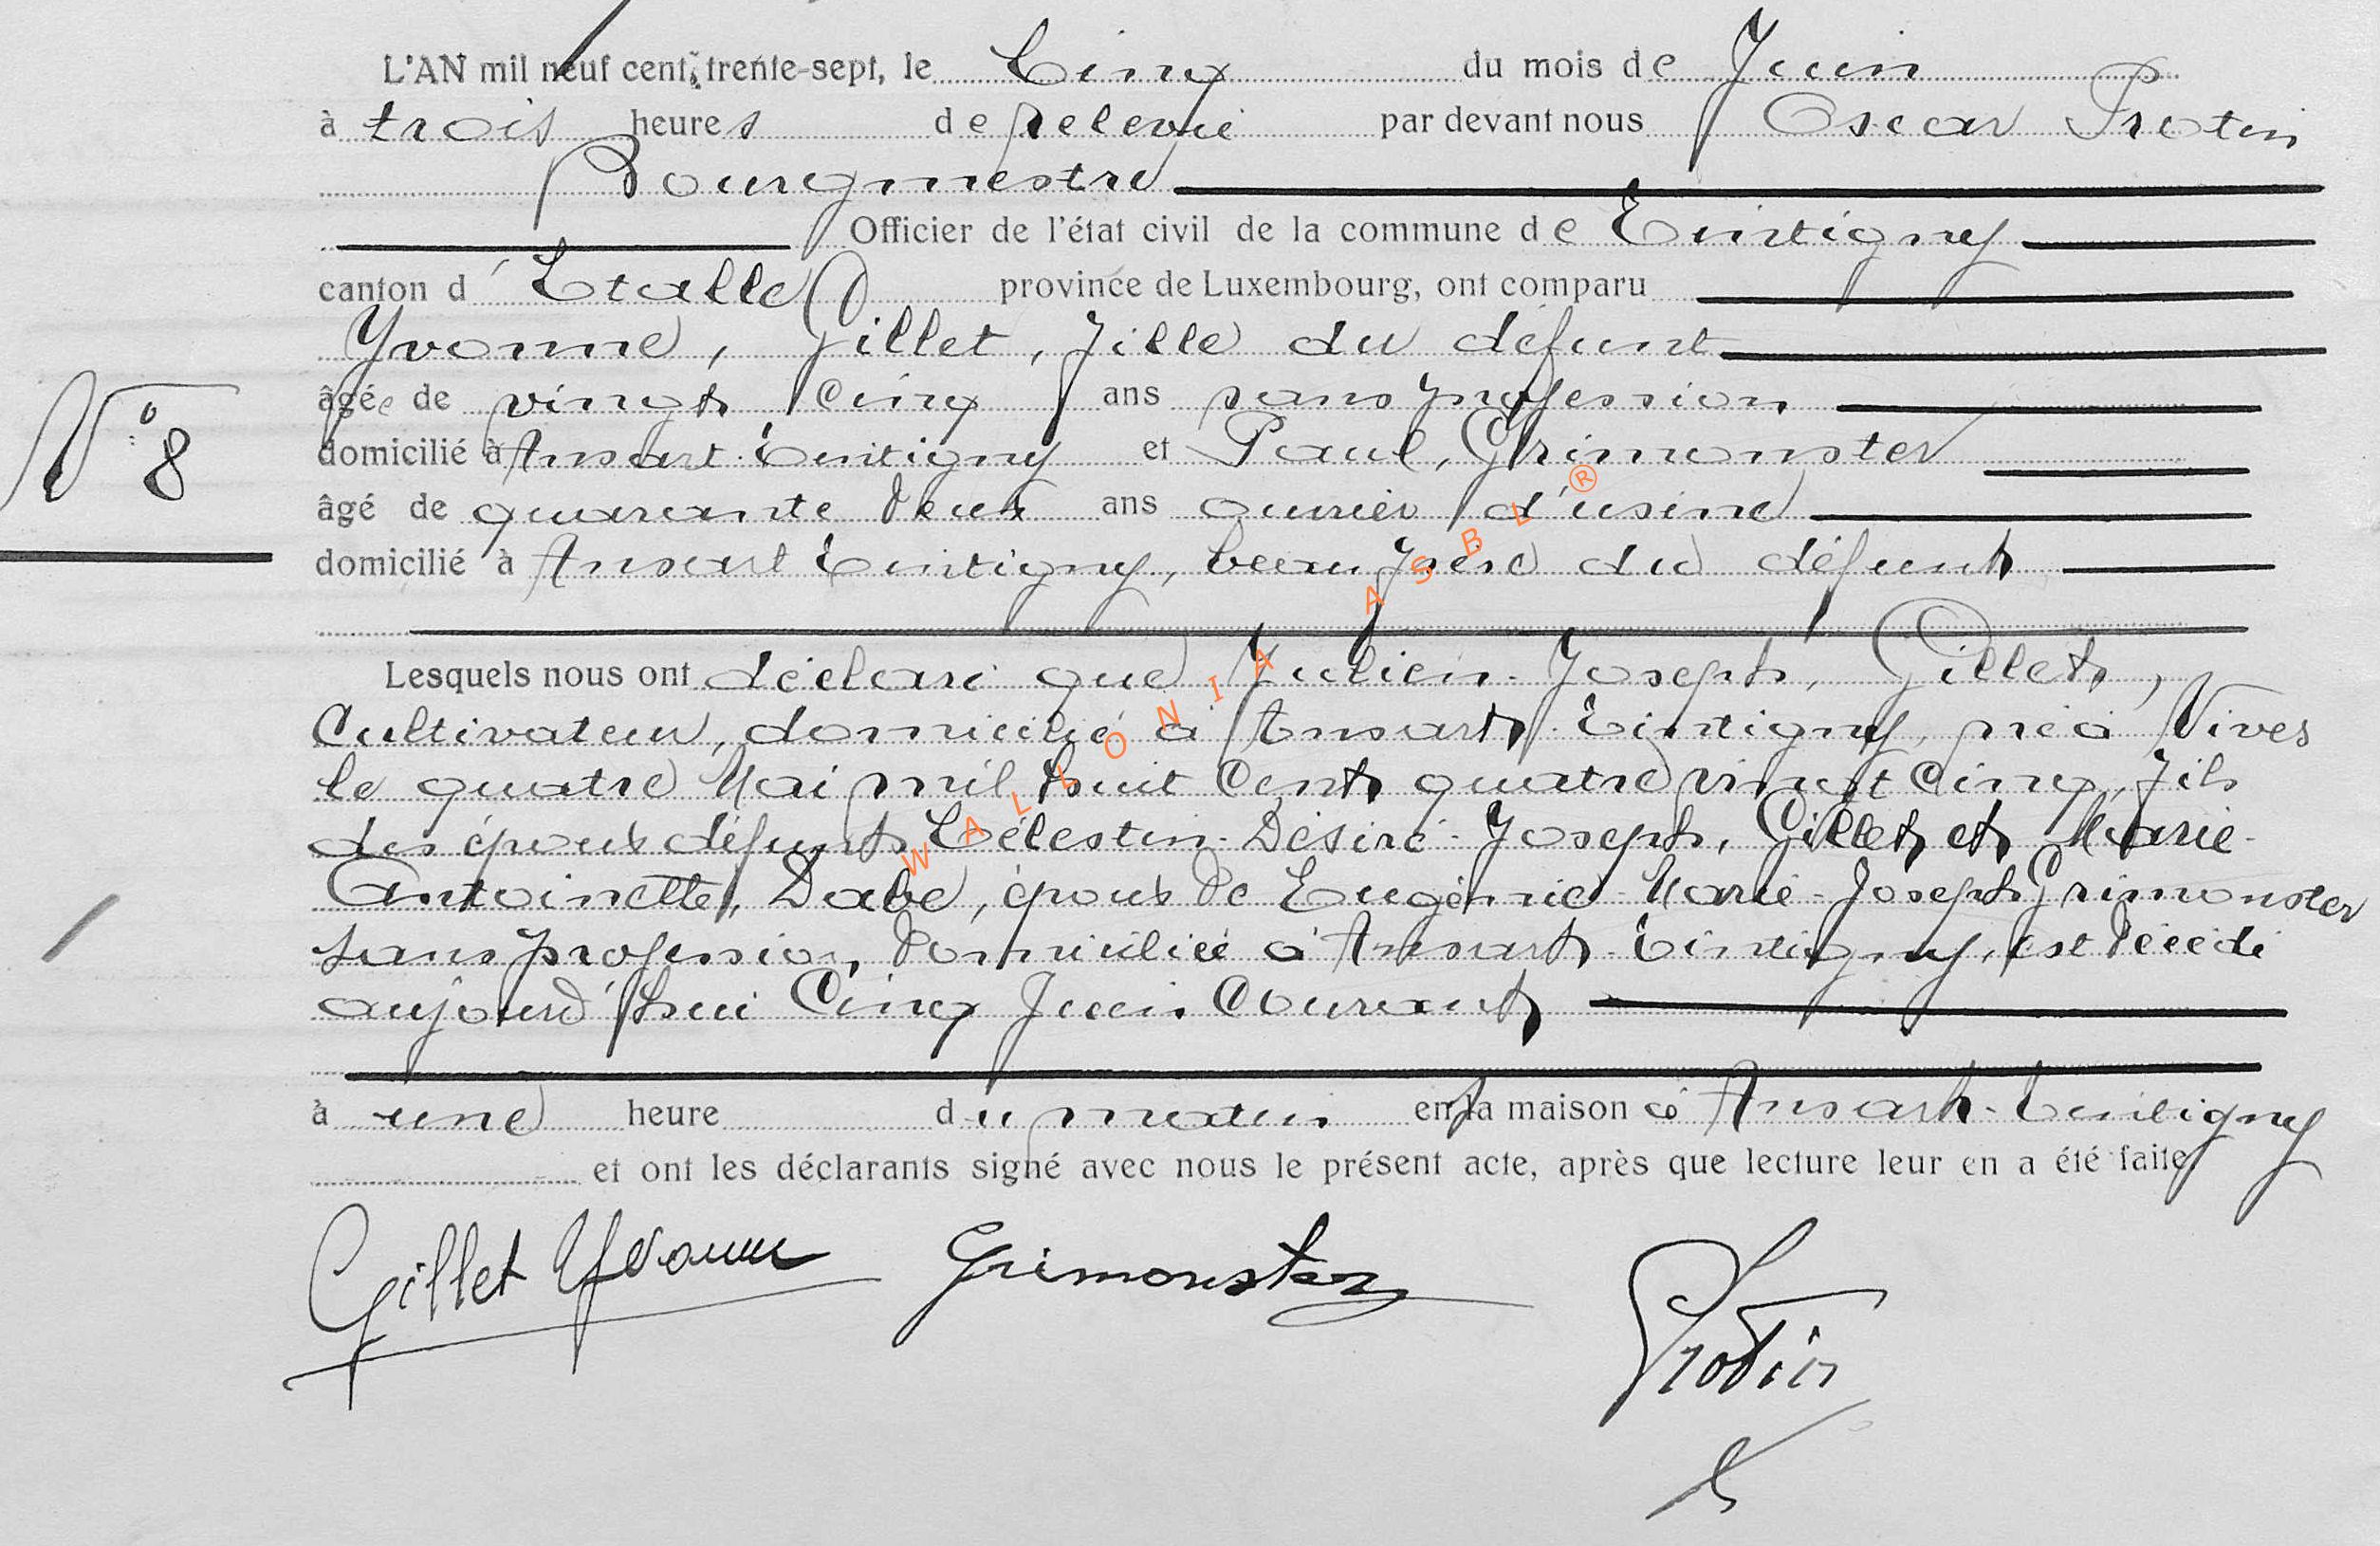 L'AN mil neuf cent trente-sept, le Cinq du mois de Juin
à trois heures de relevée par devant nous Oscar Protin
Bourgmestre
Officier de l'état civil de la commune de Tintigny
canton d'Etalle province de Luxembourg, ont comparu
Yvonne, Gillet, fille du défunt
âgée de vingt cinq ans sans profession
domicilié à Ansart-Tintigny et Paul, Grimonster
âgé de quarante deux ans ouvrier d'usine
domicilié à Ansart Tintigny, beau frère du défunt
N° 8
Lesquels nous ont déclaré que Julien-Joseph, Gillet,
Cultivateur, domicilié à Ansart-Tintigny, né à Vives
le quatre Mai mil huit cent quatre vingt cinq, fils
des époux défunts Célestin-Désiré-Joseph, Gillet et Marie-
Antoinette, Dabe, époux de Eugénie-Marie-Joseph Grimonster
sans profession, domiciliée à Ansart-Tintigny, est décédé
aujourd'hui Cinq Juin Courant
à une heure du matin en la maison à Ansart-Tintigny
et ont les déclarants signé avec nous le présent acte, après que lecture leur en a été faite
Gillet Yvonne Grimonster Protin
WALLONIA ASBL ®